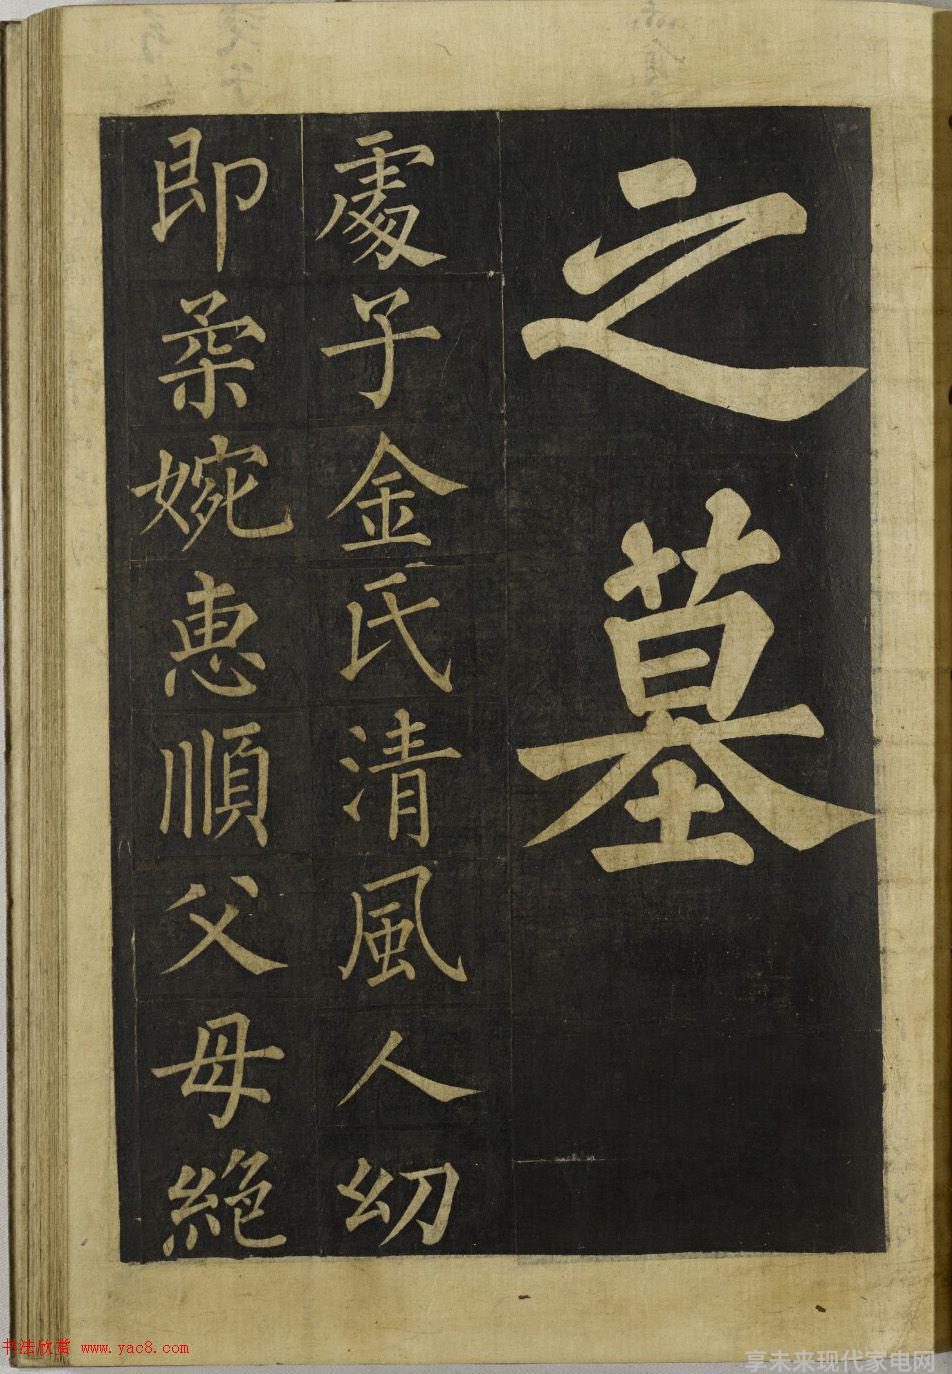 之墓
處子金氏清風人㓜
即柔婉惠順父母絶
书法欣赏 www.yac8.com
享未来现代家电网